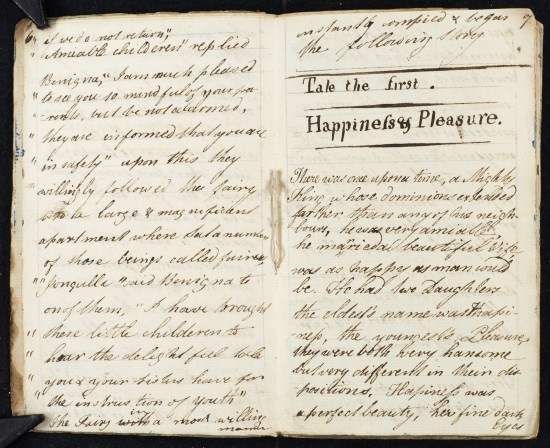 6
" if we do not return,"
" Amiable childeren" replied
Benigna, "I am much pleased
" to see you so mindful of your pa-
" rents, but be not alarmed,
" they are informed that you are
" in safety" upon this they
willingly followed the fairy
into a large & magnificent
apartment where sat a number
of those beings called fairies
" Jonquille" said Benigna to
on of them, "I have brought
" these little childeren to
" hear the delightfull tale
" you & your sisters have for
" the instruction of youth"
The Fairy with a most willing
manner
7
instantly complied & began
the following story
Tale the first.
Happiness & Pleasure.
There was once upon a time, a Mighty
King whose dominions extended
farther than any of his neigh-
bours, he was very amiable
he married a beautiful wife
was as happy as man could
be. He had two Daughters
the eldest's name was Happi-
ness, the youngest's Pleasure,
they were both very hansome
but very different in their dis
positions, Happiness was
a perfect beauty, her fine dark
Eyes